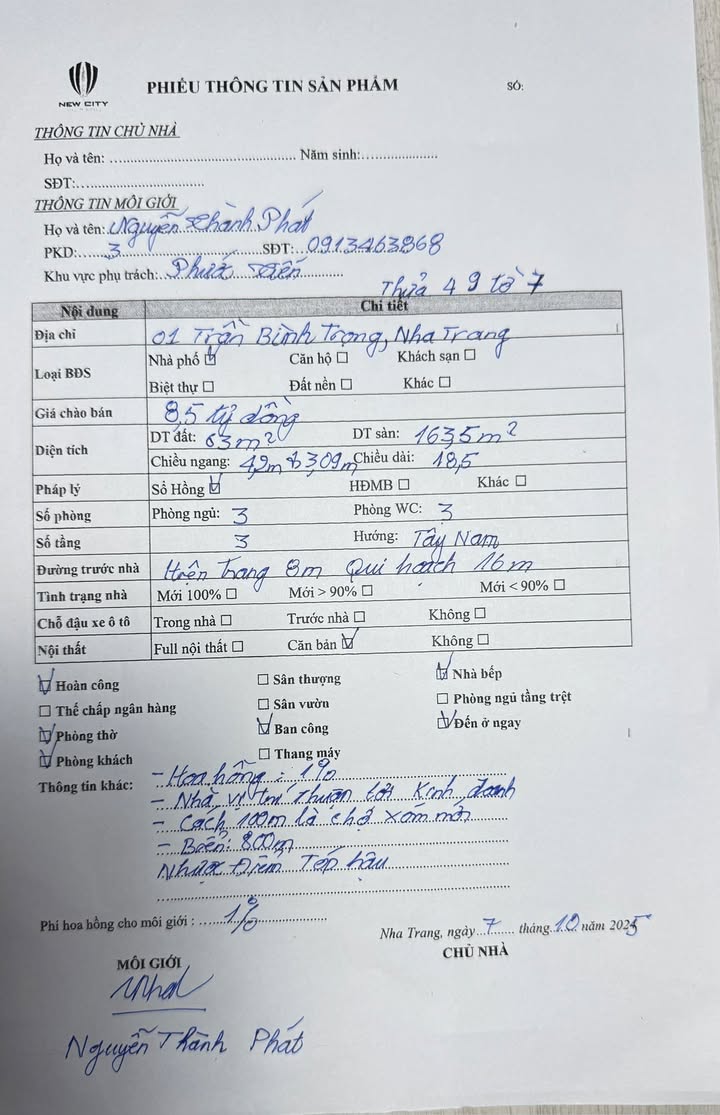 NEW CITY
PHIẾU THÔNG TIN SẢN PHẨM
SỐ:
THÔNG TIN CHỦ NHÀ
Họ và tên: Năm sinh:
SĐT:
THÔNG TIN MÔI GIỚI
Họ và tên: Nguyễn Thành Phát
PKD: 3 SĐT: 0913463868
Khu vực phụ trách: Phước
Thửa 49 tờ 7
Nội dung Chi tiết
Địa chỉ 01 Trần Bình Trọng, Nha Trang
Loại BĐS Nhà phố ☑ Căn hộ ☐ Khách sạn ☐
Biệt thự ☐ Đất nền ☐ Khác ☐
Giá chào bán 8,5 tỷ đồng
Diện tích DT đất: 63m² DT sàn: 163,5m²
Chiều ngang: 4,2m 3,09m Chiều dài: 18,5
Pháp lý Sổ Hồng ☑ HĐMB ☐ Khác ☐
Số phòng Phòng ngủ: 3 Phòng WC: 3
Số tầng 3 Hướng: Tây Nam
Đường trước nhà Hiện Trạng 8m Qui hoạch 16m
Tình trạng nhà Mới 100% ☐ Mới > 90% ☐ Mới < 90% ☐
Chỗ đậu xe ô tô Trong nhà ☐ Trước nhà ☐ Không ☐
Nội thất Full nội thất ☐ Căn bản ☑ Không ☐
☑ Hoàn công ☐ Sân thượng ☑ Nhà bếp
☐ Thế chấp ngân hàng ☐ Sân vườn ☐ Phòng ngủ tầng trệt
☑ Phòng thờ ☑ Ban công ☑ Đến ở ngay
☑ Phòng khách ☐ Thang máy
Thông tin khác: - Hoa hồng: 1%
- Nhà vị trí thuận lợi Kinh doanh
- Cách 100m là chợ xóm mới
- Biển: 800m
Nhược Điểm Tóp hậu
Phí hoa hồng cho môi giới : 1%
Nha Trang, ngày 7 tháng 10 năm 2025
MÔI GIỚI CHỦ NHÀ
Nguyễn Thành Phát